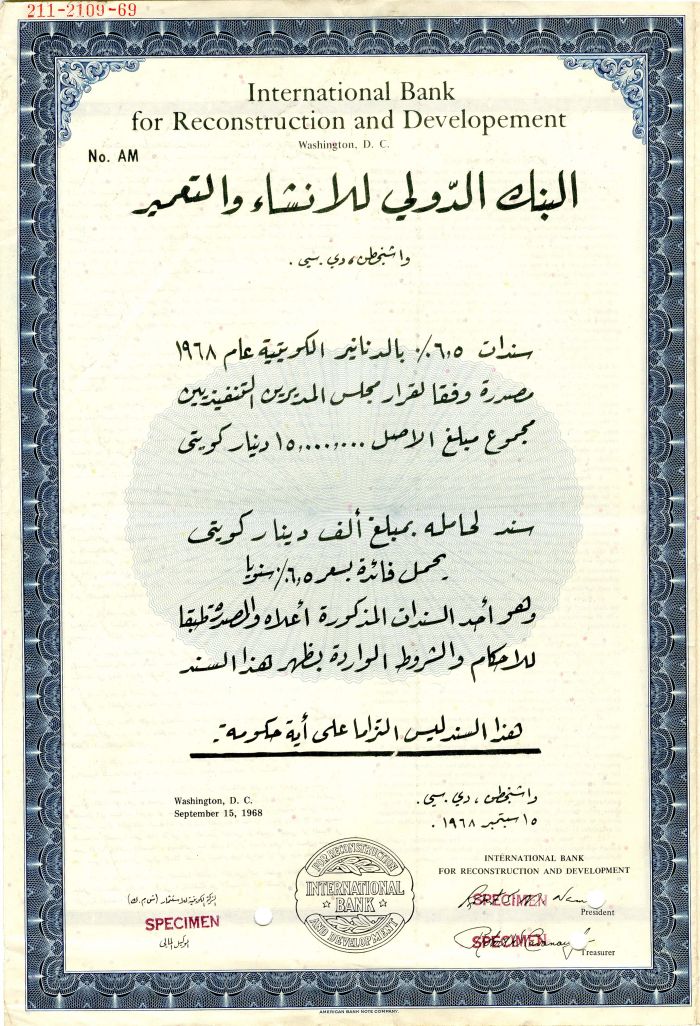 211-2109-69
International Bank
for Reconstruction and Developement
Washington, D. C.
No. AM
البنك الدّولي للانشاء والتعمير
واشنجطن، دي. سي.
سندات ٦،٥٪ بالدنانير الكويتية عام ١٩٦٨
مصدرة وفقا لقرار مجلس المديرين التنفيذيين
مجموع مبلغ الاصل ١٥,٠٠٠,٠٠٠ دينار كويتى
سند لحامله بمبلغ ألف دينار كويتى
يحمل فائدة بسعر ٦،٥٪ سنويا
وهو أحد السندات المذكورة أعلاه والمصدرة طبقا
للاحكام والشروط الواردة بظهر هذا السند
هذا السند ليس التزاما على أية حكومة.
Washington, D. C.
September 15, 1968
واشنجطن، دي. سيى.
١٥ سبتمبر ١٩٦٨.
INTERNATIONAL BANK
FOR RECONSTRUCTION AND DEVELOPMENT
SPECIMEN
President
SPECIMEN
Treasurer
FOR RECONSTRUCTION
INTERNATIONAL
BANK
AND DEVELOPMENT
للاستثمار (ش.م.ك)
SPECIMEN
AMERICAN BANK NOTE COMPANY.